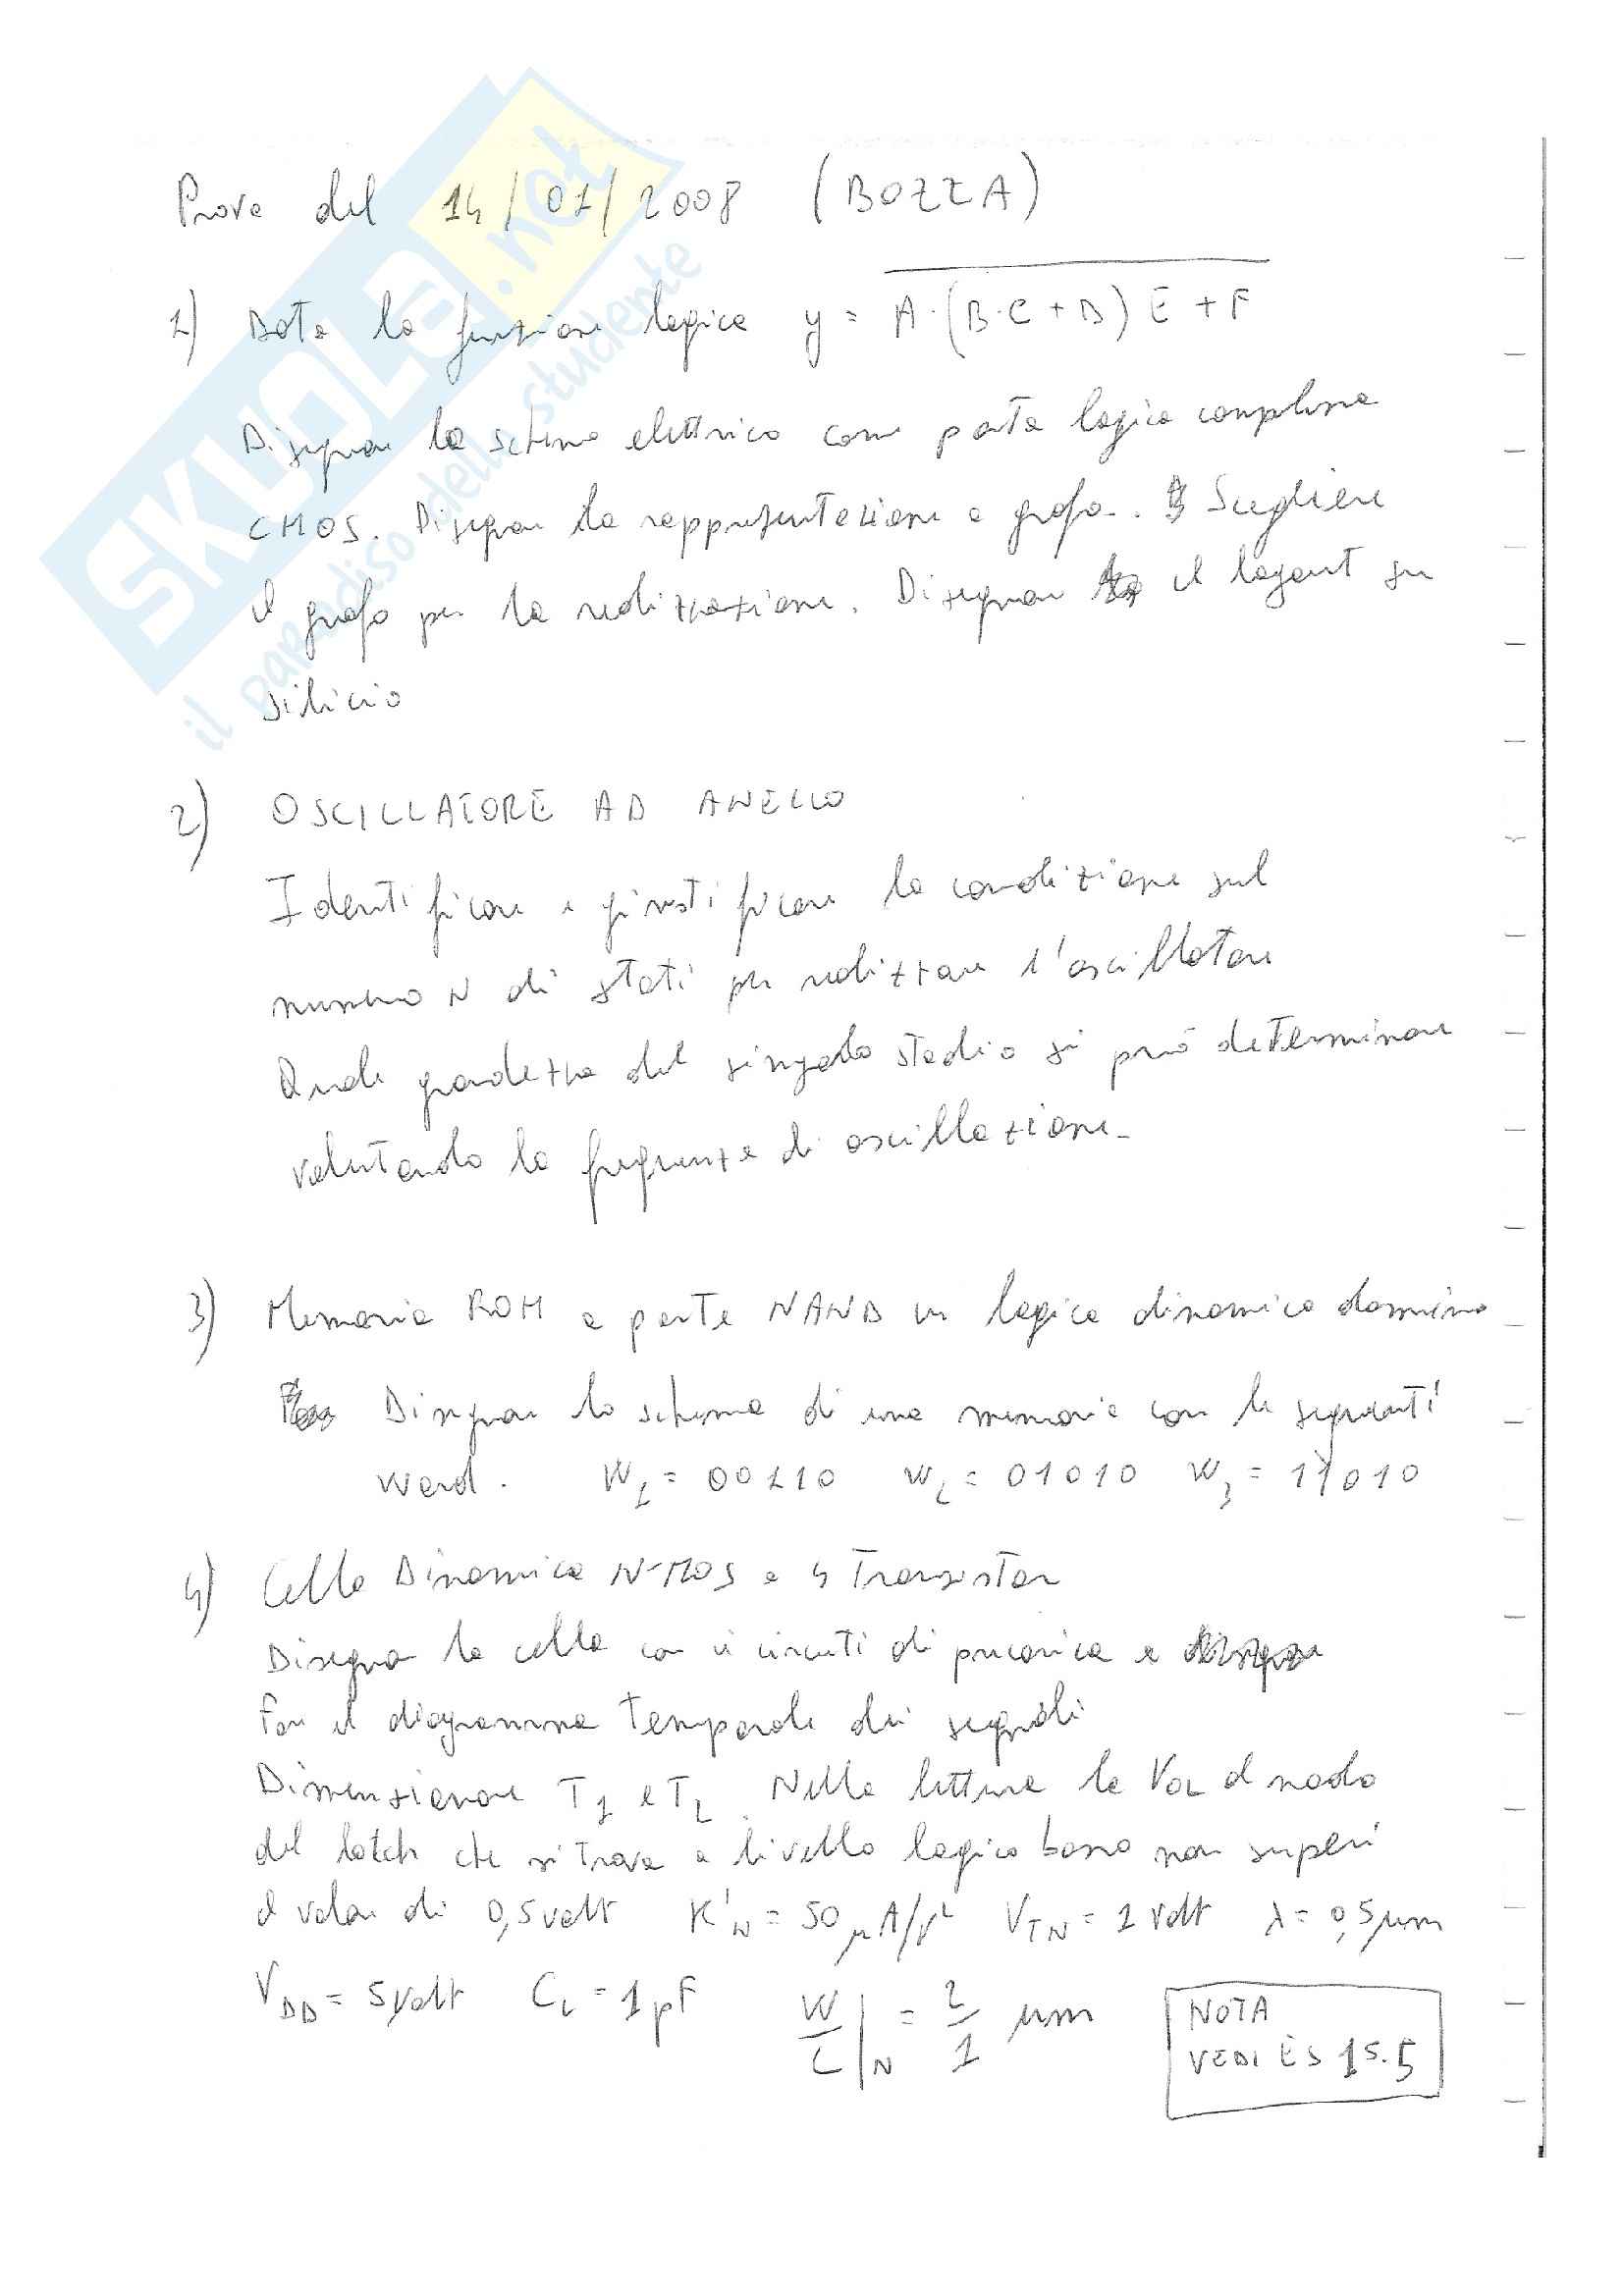 Prova del 14/01/2008 (BOZZA)
1) Data la funzione logica y = A·(B·C+D) E + F
Disegnare lo schema elettrico come porta logica complessa
CMOS. Disegnare la rappresentazione a grafo. Scegliere
il grafo per la realizzazione. Disegnare il layout su
silicio
2) OSCILLATORE AD ANELLO
Identificare e giustificare la condizione sul
numero N di stadi per realizzare l'oscillatore
Quale grandezza del singolo stadio si può determinare
valutando la frequenza di oscillazione.
3) Memoria ROM a porte NAND in logica dinamica domino
Disegnare lo schema di una memoria con le seguenti
Word. W1 = 00110 W2 = 01010 W3 = 11010
4) Cella Dinamica N-MOS a 4 Transistor
Disegnare la cella con i circuiti di precarica e
Fare il diagramma temporale dei segnali
Dimensionare T1 e T2. Nella lettura la VOL al nodo
del latch che si trova a livello logico basso non superi
il valore di 0,5 volt K'N = 50 μA/V² VTN = 1 Volt λ = 0,5 μm
VDD = 5 Volt CL = 1 pF W/L|N = 2/1 μm
NOTA
VEDI ES 15.5
SKUOLA.net
il paradiso dello studente